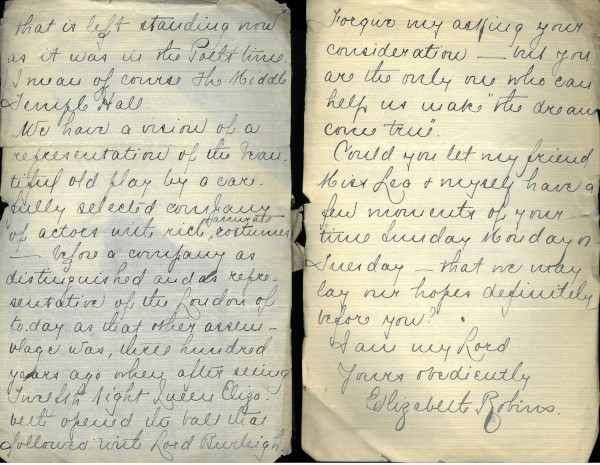 that is left standing now
as it was in the Poets time
I mean of course the Middle
Temple Hall.
We have a vision of a
representation of the beau-
tiful old play by a care-
fully selected company
of actors with rich, accurate costumes
— before a company as
distinguished and as repre-
sentative of the London of
to day as that other assem-
blage was, three hundred
years ago when after seeing
Twelfth Night Queen Eliza-
beth opened the ball that
followed with Lord Burleigh.
Forgive my asking your
consideration — but you
are the only one who can
help us make "the dream
come true".
Could you let my friend
Miss Lea & myself have a
few moments of your
time Sunday Monday or
Tuesday — that we may
lay our hopes definitely
before you?
I am my Lord
Yours obediently
Elizabeth Robins.